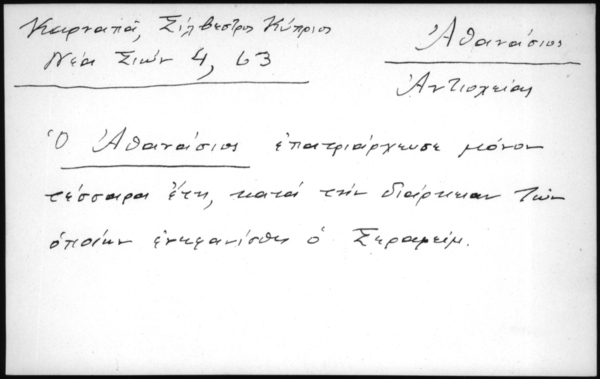 Καρναπά, Σίλβεστρος Κύπριος
Νέα Σιών 4, 63
Ἀθανάσιος
Ἀντιοχείας
Ὁ Ἀθανάσιος ἐπατριάρχευσε μόνον
τέσσαρα ἔτη, κατά τήν διάρκειαν τῶν
ὁποίων ἐνεφανίσθη ὁ Σεραφείμ.